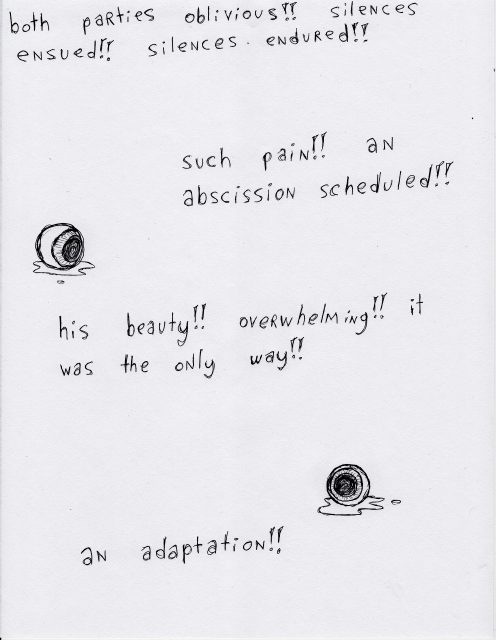 both parties oblivious!! silences
ensued!! silences. endured!!
such pain!! an
abscission scheduled!!
his beauty!! overwhelming!! it
was the only way!!
an adaptation!!